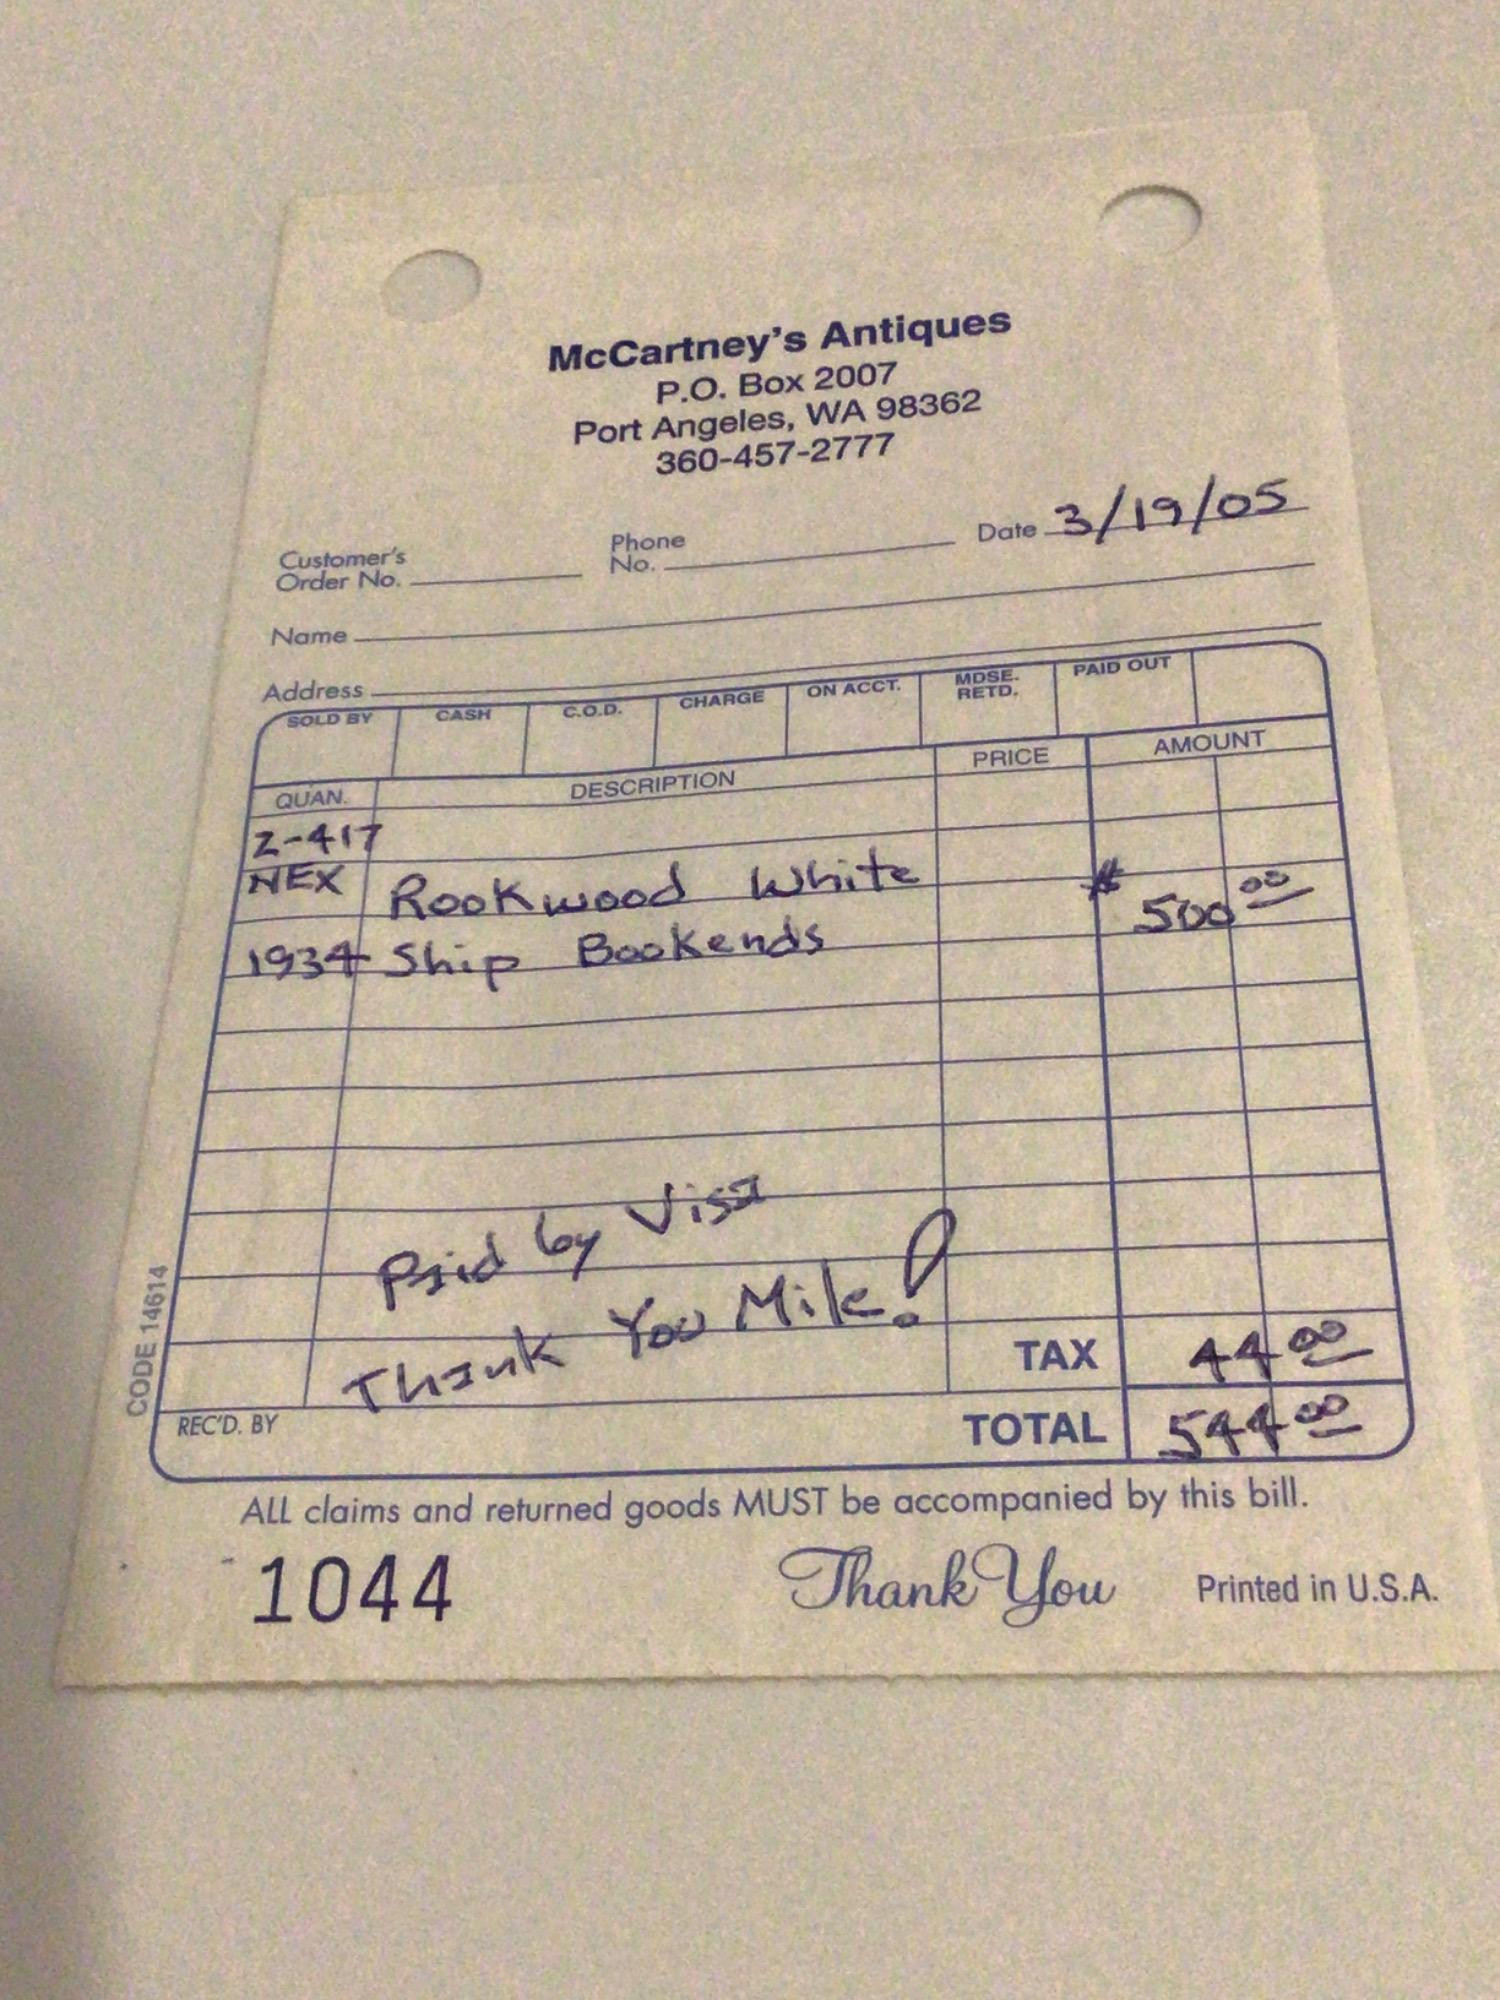 McCartney's Antiques
P.O. Box 2007
Port Angeles, WA 98362
360-457-2777
Customer's Order No. Phone No. Date 3/19/05
Name
Address
SOLD BY CASH C.O.D. CHARGE ON ACCT. MDSE. RETD. PAID OUT
QUAN. DESCRIPTION PRICE AMOUNT
Z-417
NEX Rookwood White $ 500 00
1934 Ship Bookends
Paid by Visa
Thank You Mike!
TAX 44 00
REC'D. BY TOTAL 544 00
CODE 14614
ALL claims and returned goods MUST be accompanied by this bill.
1044 Thank You Printed in U.S.A.